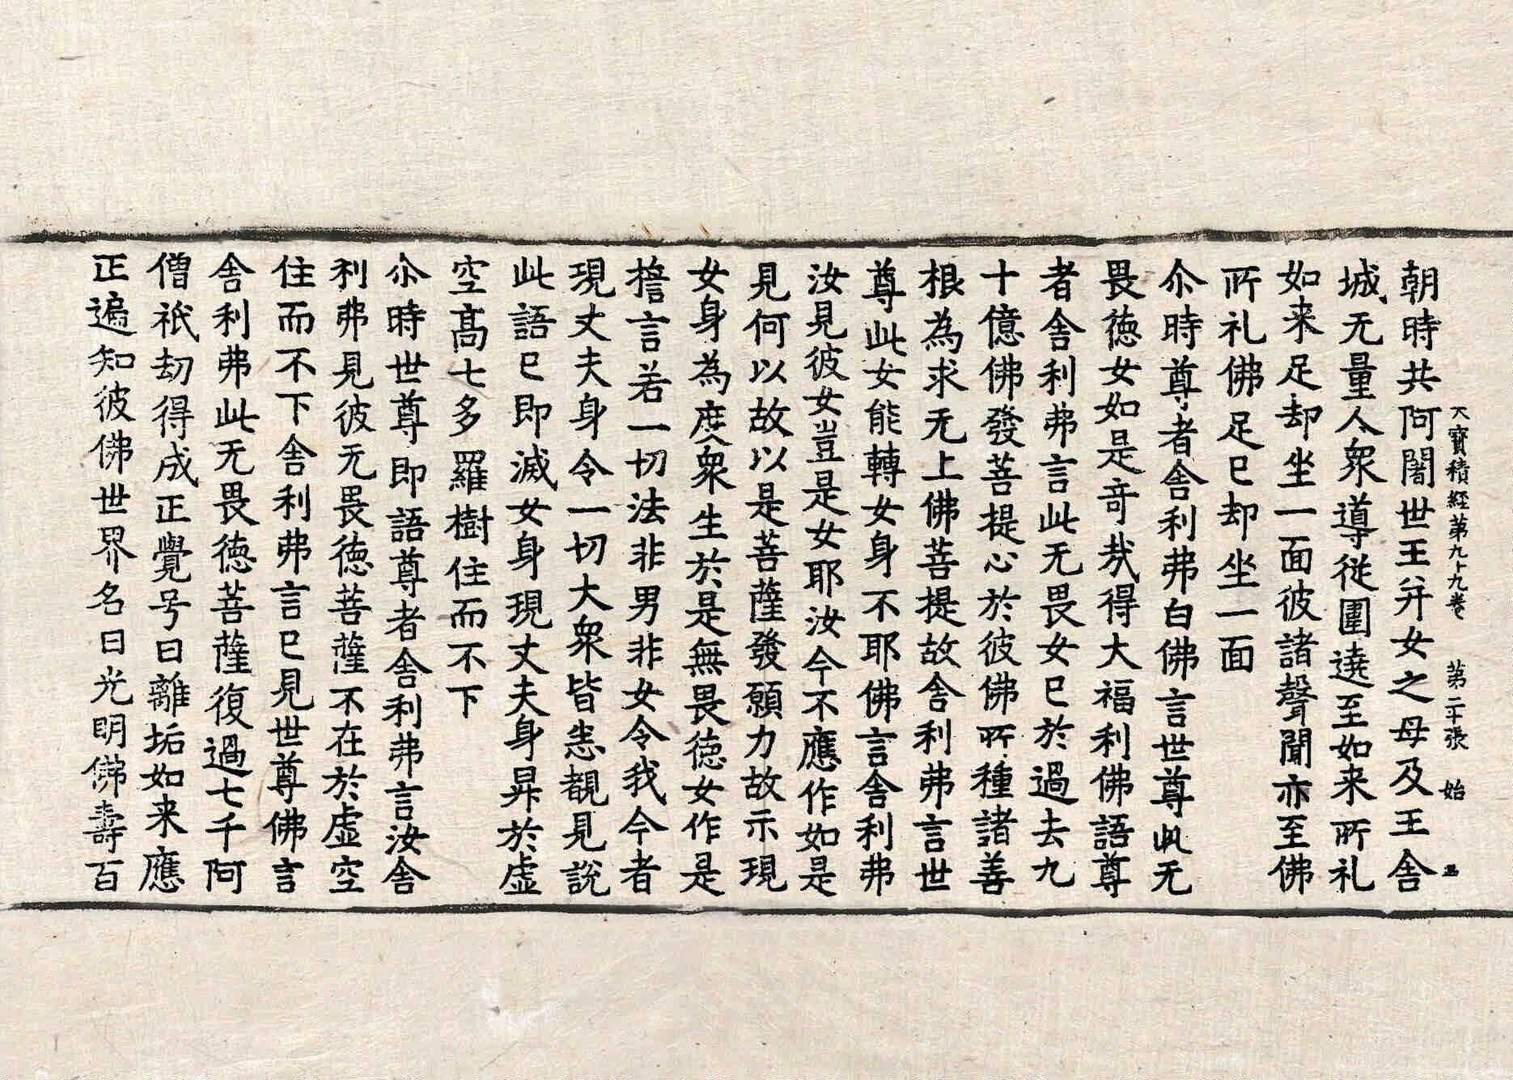 大寶積經第九十九卷 第二十張 始
朝時共阿闍世王并女之母及王舍
城无量人衆導從圍遶至如来所礼
如来足却坐一面彼諸聲聞亦至佛
所礼佛足已却坐一面
尒時尊者舍利弗白佛言世尊此无
畏徳女如是奇㢤得大福利佛語尊
者舍利弗言此无畏女已於過去九
十億佛發菩提心於彼佛所種諸善
根為求无上佛菩提故舍利弗言世
尊此女能轉女身不耶佛言舍利弗
汝見彼女豈是女耶汝今不應作如是
見何以故以是菩薩發願力故示現
女身為度衆生於是無畏徳女作是
擔言若一切法非男非女令我今者
現丈夫身令一切大衆皆悉覩見說
此語已即滅女身現丈夫身昇於虛
空髙七多羅樹住而不下
尒時世尊即語尊者舍利弗言汝舍
利弗見彼无畏徳菩薩不在於虛空
住而不下舍利弗言已見世尊佛言
舍利弗此无畏徳菩薩復過七千阿
僧祇劫得成正覺号曰離垢如来應
正遍知彼佛世界名曰光明佛壽百